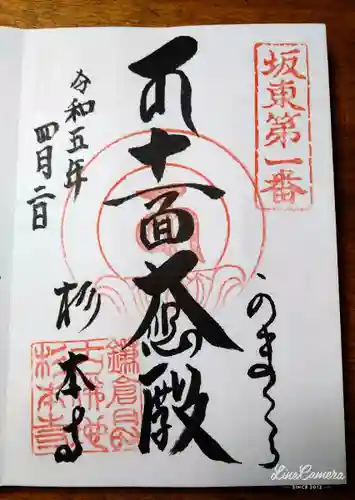 坂東第一番
のまくら
十一面大悲殿
令和五年
四月二日
杉本寺
鎌倉
杉本寺
LineCamera
SINCE 2012